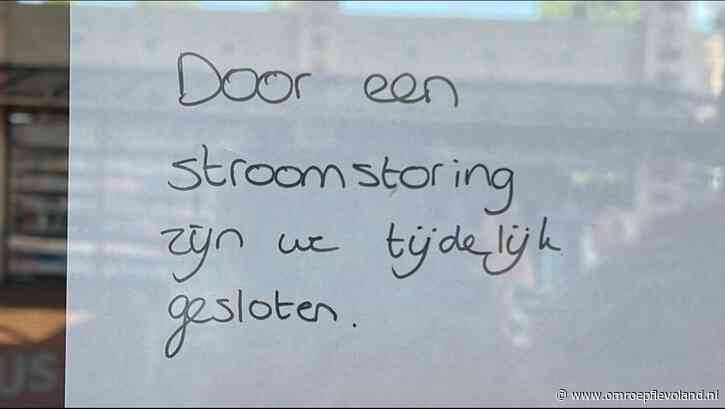 Door een
stroomstoring
zijn we tijdelijk
gesloten.
US
© www.omroepflevoland.nl